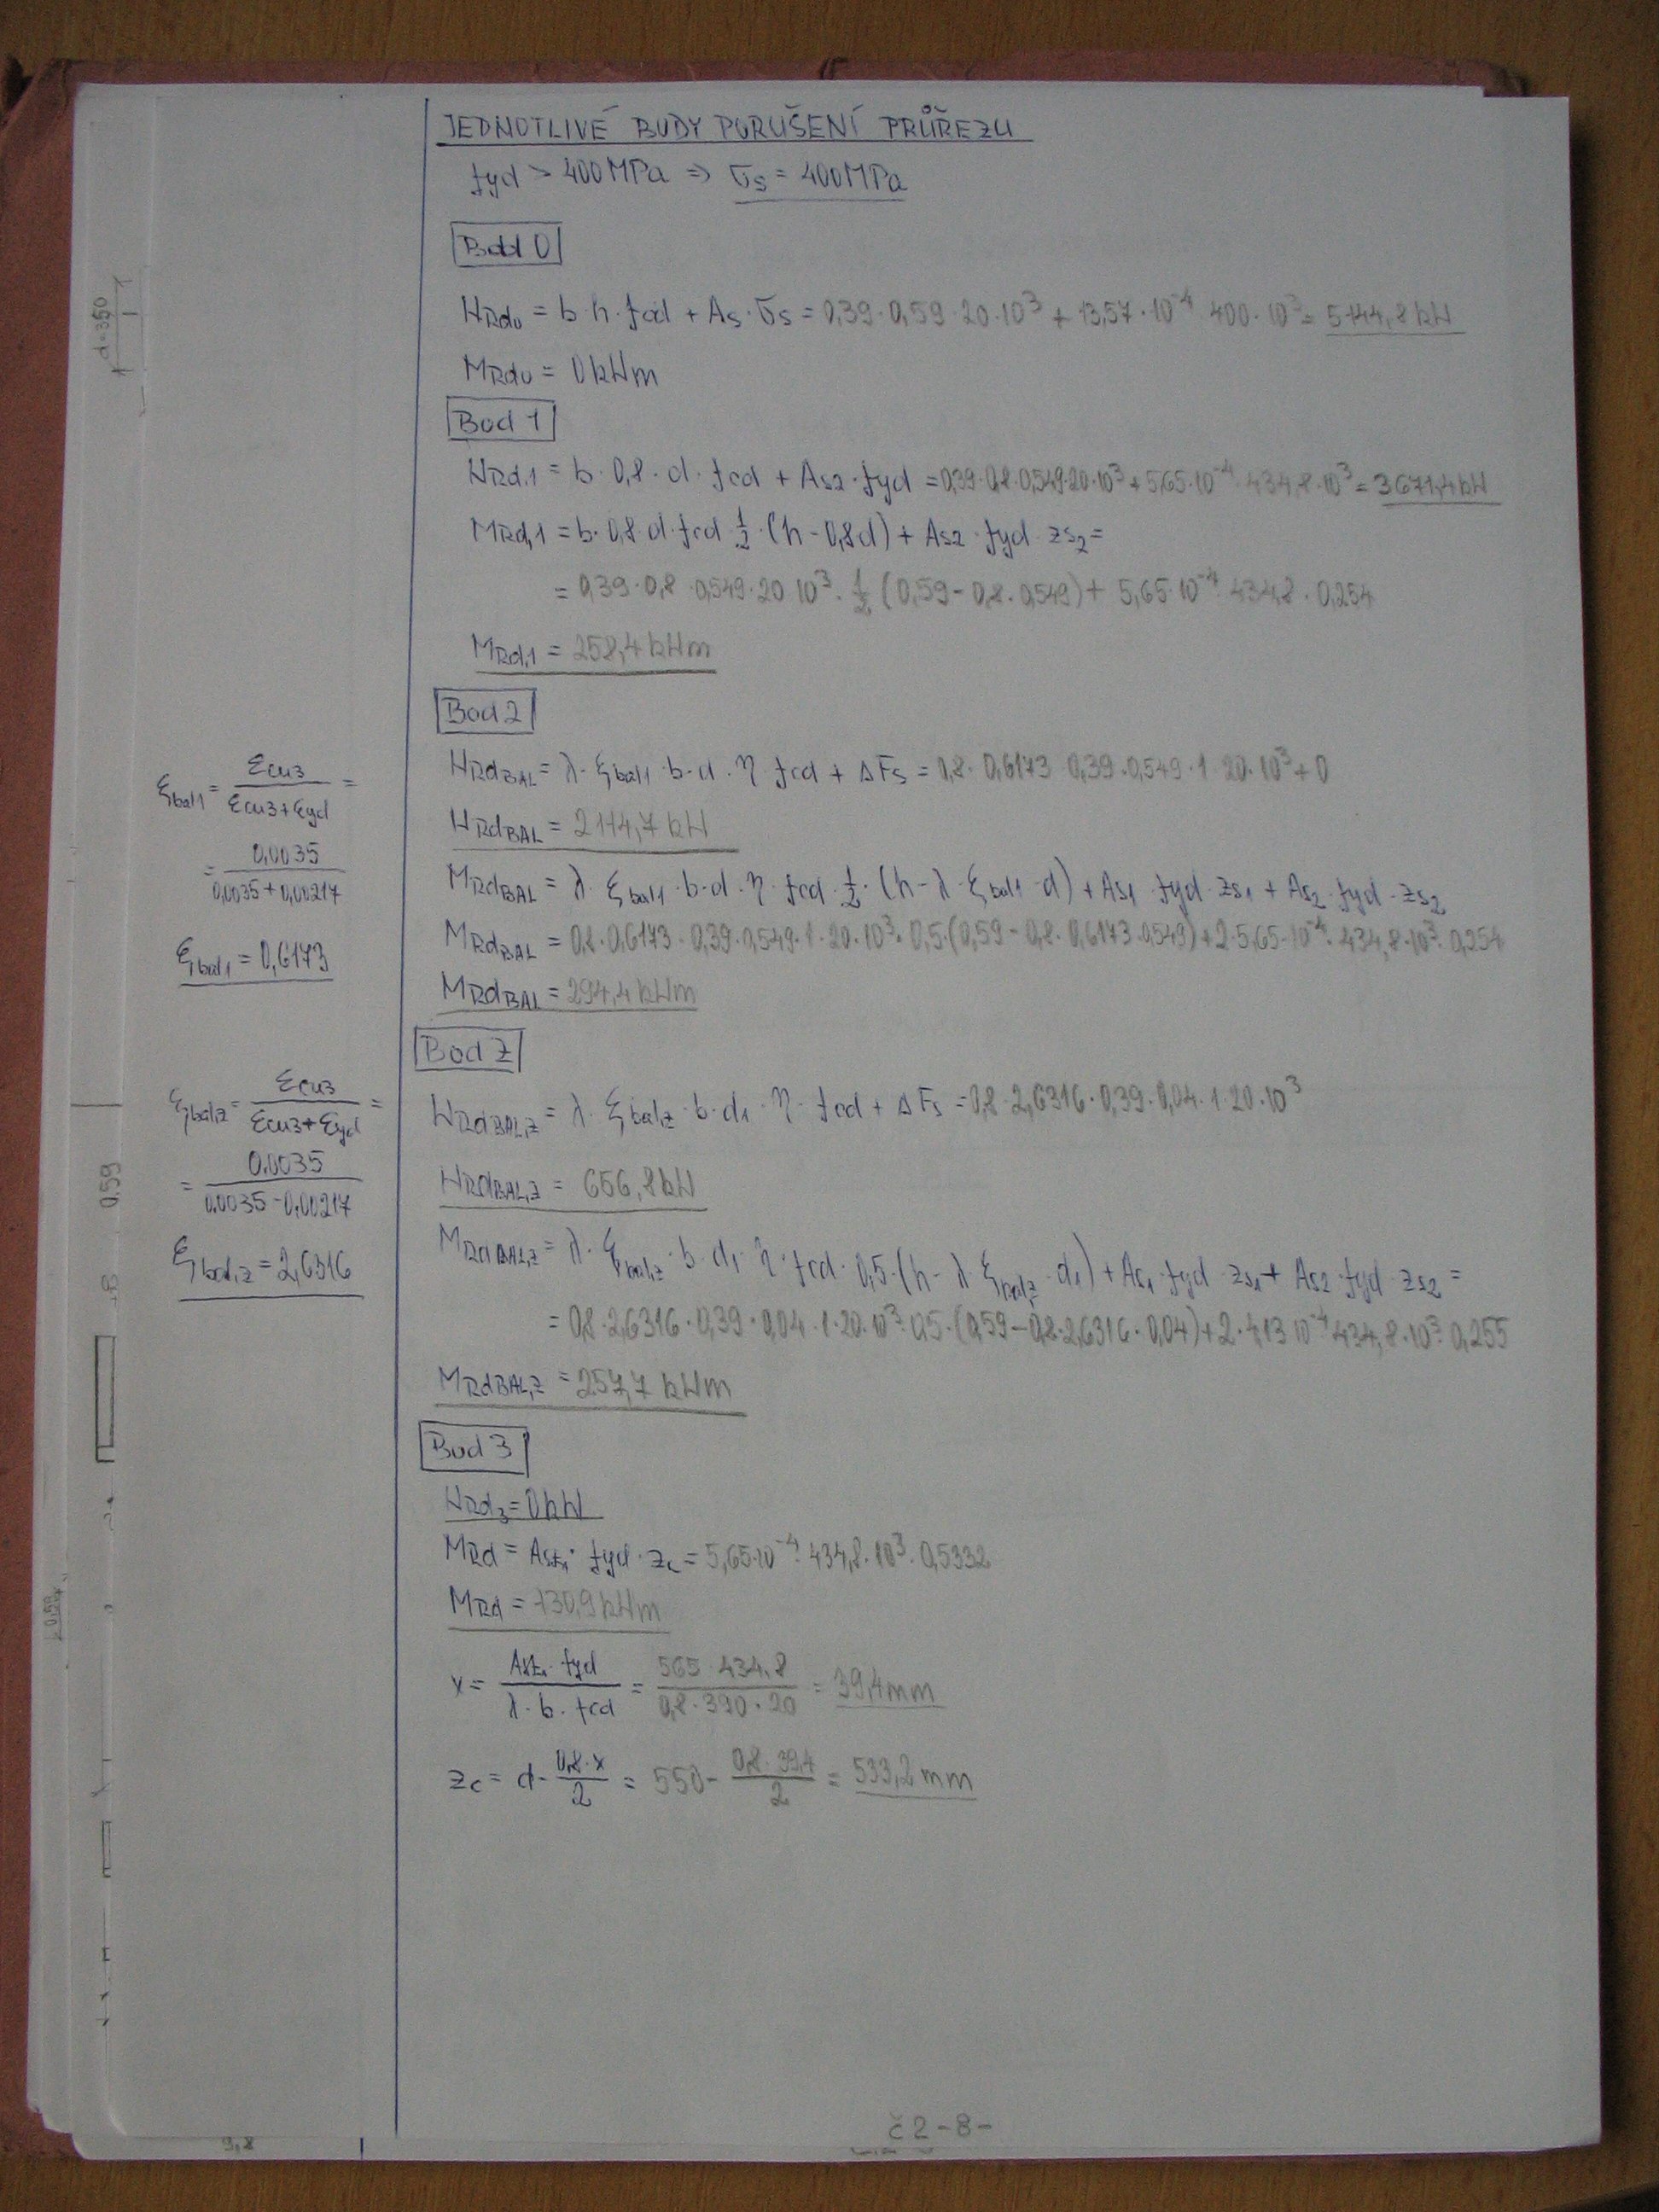 JEDNOTLIVÉ BODY PORUŠENÍ PRŮŘEZU
fyd > 400MPa ⇒ σs = 400MPa
Bod 0
NRd0 = b·h·fcd + As·σs = 0,39·0,59·20·10³ + 13,57·10⁻⁴·400·10³ = 5144,8 kN
MRd0 = 0kNm
Bod 1
NRd,1 = b·0,8·d·fcd + As2·fyd = 0,39·0,8·0,549·20·10³ + 5,65·10⁻⁴·434,8·10³ = 3671,4kN
MRd,1 = b·0,8·d·fcd·½·(h-0,8d) + As2·fyd·zs2 =
= 0,39·0,8·0,549·20·10³·½·(0,59-0,8·0,549) + 5,65·10⁻⁴·434,8·0,254
MRd,1 = 258,4kNm
Bod 2
NRdBAL = λ·ξbal1·b·d·η·fcd + ΔFs = 0,8·0,6173·0,39·0,549·1·20·10³+0
NRdBAL = 2114,7 kN
MRdBAL = λ·ξbal1·b·d·η·fcd·½·(h-λ·ξbal1·d) + As1·fyd·zs1 + As2·fyd·zs2
MRdBAL = 0,8·0,6173·0,39·0,549·1·20·10³·0,5·(0,59-0,8·0,6173·0,549)+2·5,65·10⁻⁴·434,8·10³·0,254
MRdBAL = 294,4 kNm
ξbal1 = εcu3 / (εcu3+εyd) =
= 0,0035 / (0,0035+0,00217)
ξbal1 = 0,6173
Bod Z
NRdBAL,Z = λ·ξbal,z·b·d1·η·fcd + ΔFs = 0,8·2,6316·0,39·0,04·1·20·10³
NRdBAL,Z = 656,8kN
MRdBAL,Z = λ·ξbal,z·b·d1·η·fcd·0,5·(h-λ·ξbal,z·d1) + As1·fyd·zs1 + As2·fyd·zs2 =
= 0,8·2,6316·0,39·0,04·1·20·10³·0,5·(0,59-0,8·2,6316·0,04)+2·4,13·10⁻⁴·434,8·10³·0,255
MRdBAL,Z = 257,7 kNm
ξbal,z = εcu3 / (εcu3+εyd) =
= 0.0035 / (0.0035-0,00217)
ξbal,z = 2,6316
Bod 3
NRd3 = 0kN
MRd = Ast1·fyd·zc = 5,65·10⁻⁴·434,8·10³·0,5332
MRd = 130,9 kNm
x = Ast1·fyd / (λ·b·fcd) = 565·434,8 / (0,8·390·20) = 39,4mm
zc = d - 0,8·x / 2 = 550 - 0,8·39,4 / 2 = 533,2 mm
č2-8-
d=350
0.59
9,8